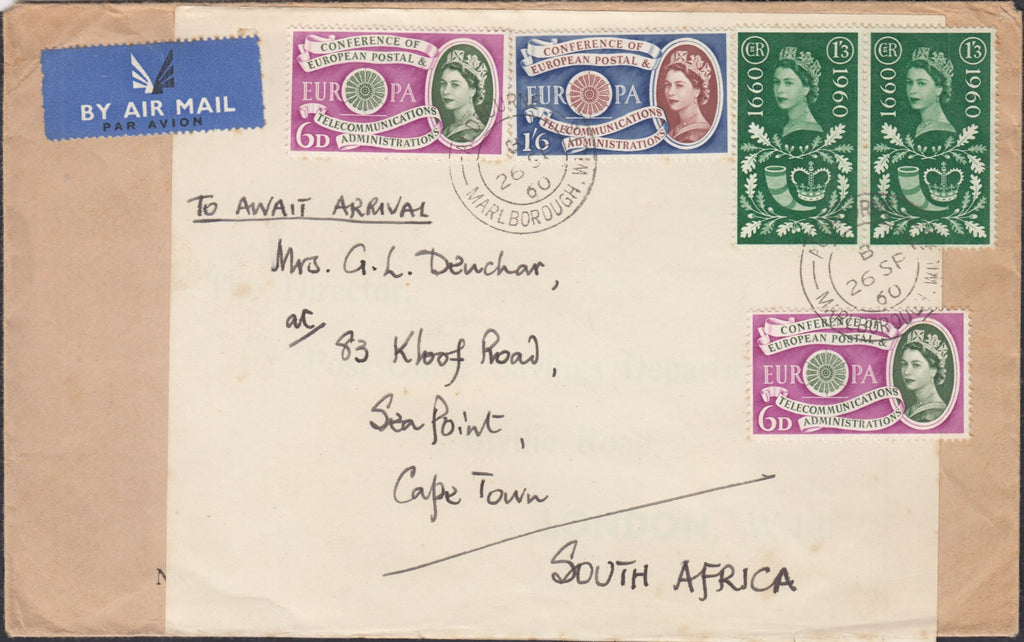 BY AIR MAIL
PAR AVION
CONFERENCE OF
EUROPEAN POSTAL &
EUROPA
TELECOMMUNICATIONS
ADMINISTRATIONS
6D
CONFERENCE OF
EUROPEAN POSTAL &
EUROPA
TELECOMMUNICATIONS
ADMINISTRATIONS
1'6
1'3
1660 1960
1'3
1660 1960
26 SP
60
MARLBOROUGH, WI
TO AWAIT ARRIVAL
Mrs. G. L. Deuchar,
at
83 Kloof Road,
Sea Point,
Cape Town
SOUTH AFRICA
B
26 SP
60
MARLBOROUGH, WI
CONFERENCE OF
EUROPEAN POSTAL &
EUROPA
TELECOMMUNICATIONS
ADMINISTRATIONS
6D
The Director,
Post Office Savings
Road,
LONDON, W.14
N